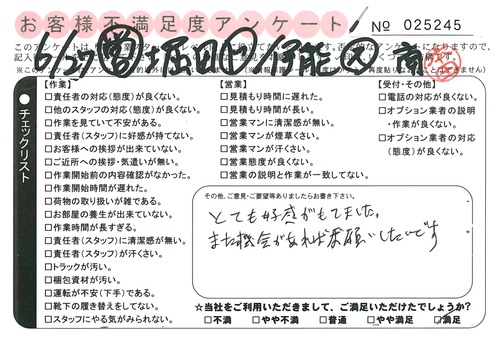 お客様不満足度アンケート
No 025245
6/30 営 堀切 伊能
チェックリスト
【作業】
□責任者の対応(態度)が良くない。
□他のスタッフの対応(態度)が良くない。
□作業を見ていて不安がある。
□責任者(スタッフ)に好感が持てない。
□お客様への挨拶が出来ていない。
□ご近所への挨拶・気遣いが無い。
□作業開始前の内容確認がなかった。
□作業開始時間が遅れた。
□荷物の取り扱いが雑である。
□お部屋の養生が出来ていない。
□作業時間が長すぎる。
□責任者(スタッフ)に清潔感が無い。
□責任者(スタッフ)が汗くさい。
□トラックが汚い。
□梱包資材が汚い。
□運転が不安(下手)である。
□靴下の履き替えをしてない。
□スタッフにやる気がみられない。
【営業】
□見積もり時間に遅れた。
□見積もり時間が長い。
□営業マンに清潔感が無い。
□営業マンが煙草くさい。
□営業マンが汗くさい。
□営業態度が良くない。
□営業の説明と作業が一致してない。
【受付・その他】
□電話の対応が良くない。
□オプション業者の説明
・作業が良くない。
□オプション業者の対応
(態度)が良くない。
その他、ご意見・ご要望等ありましたらお書き下さい。
とても好感がもてました。
また機会があれば お願いしたいです
☆当社をご利用いただきまして、ご満足いただけたでしょうか?
□不満 □やや不満 □普通 □やや満足 □満足